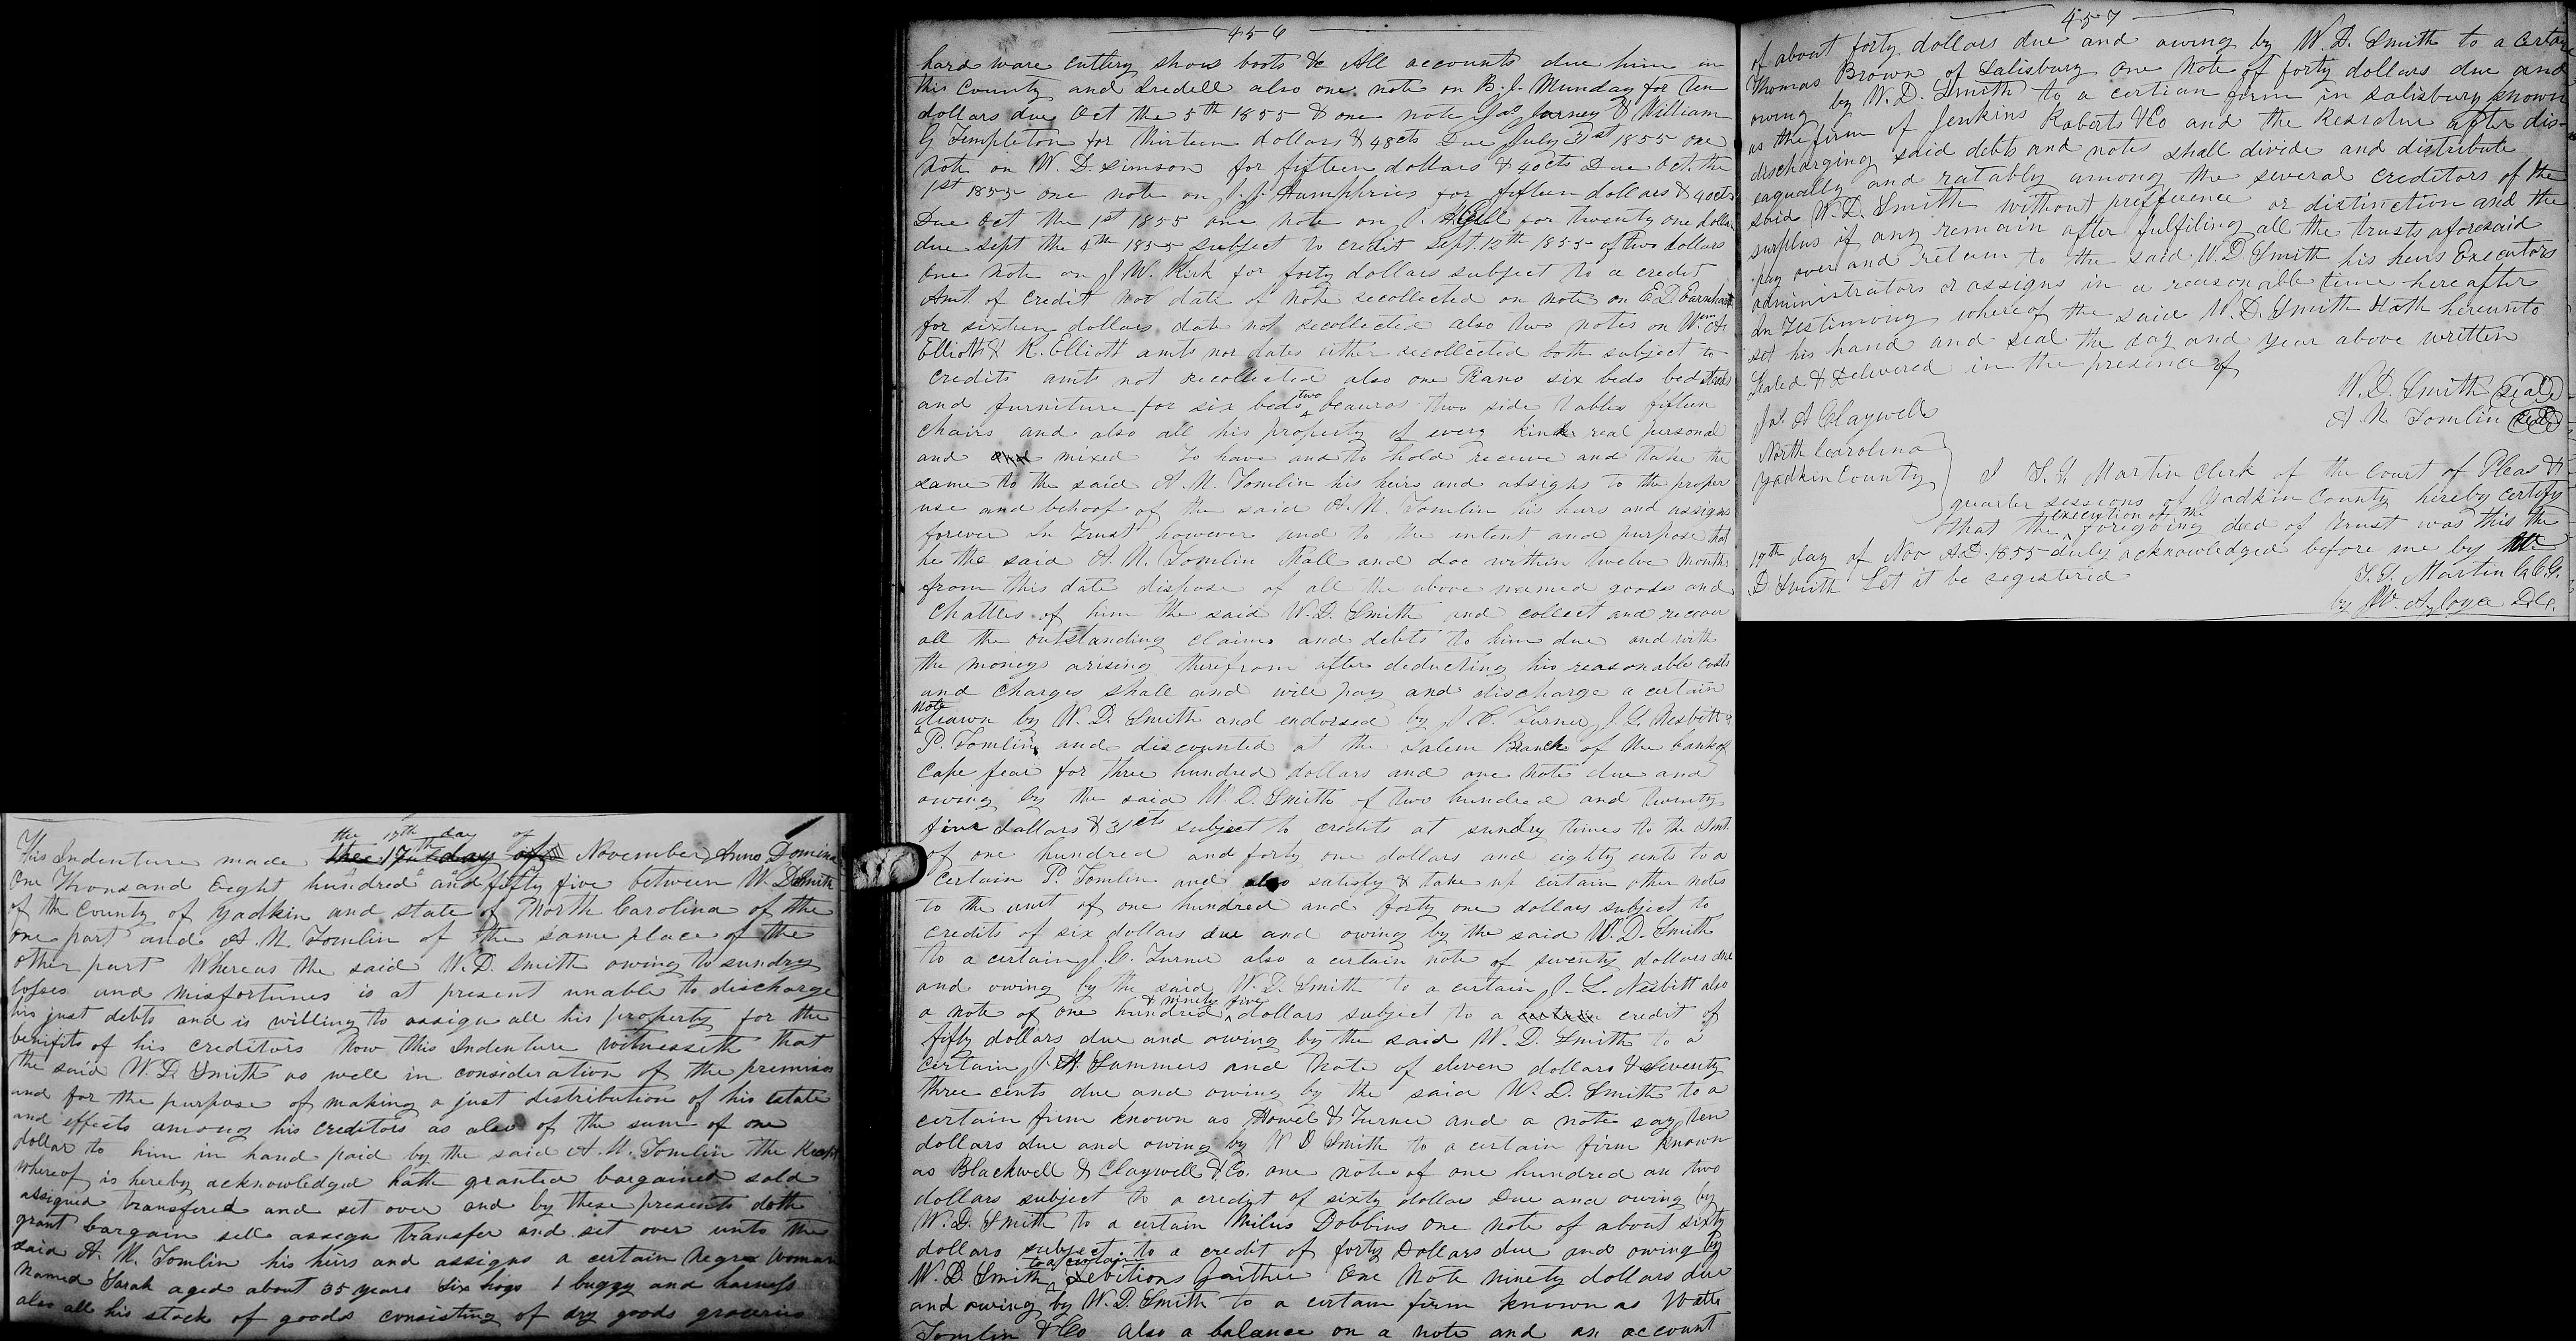 the 17th day of
This Indenture made November Anno Domina
One Thousand Eight hundred and fifty five between W. D Smith
of the County of Yadkin and state of North Carolina of the
one part and A. N. Tomlin of the same place of the
other part Whereas the said W. D. Smith owing to sundry
losses and misfortunes is at present unable to discharge
his just debts and is willing to assign all his property for the
benifits of his creditors Now this Indenture witnesseth that
the said W. D. Smith as well in consideration of the premises
and for the purpose of making a just distribution of his estate
and effects among his creditors as also of the sum of one
dollar to him in hand paid by the said A. N. Tomlin the Receipt
whereof is hereby acknowledged hath granted bargained sold
assigned transfered and set over and by these presents doth
grant bargain sell assign transfer and set over unto the
said A. N. Tomlin his heirs and assigns a certain negro woman
named Sarah aged about 35 years Six hogs 1 buggy and harness
also all his stock of goods consisting of dry goods groceries
456
hard ware cuttlery shous boots &c All accounts due him in
this County and Iredell also one note on B. J. Munday for ten
dollars due Oct the 5th 1855 & one note Jas. Jurney & William
G Templeton for thirteen dollars & 48cts Due July 31st 1855 one
note on W. D. Simson for fifteen dollars & 40cts Due Oct. the
1st 1855 one note on J. J. Humphries for fifteen dollars & 40cts
Due Oct the 1st 1855 one note on J. for twenty one dollars
due sept the 4th 1855 subject to credit Sept. 12th 1855 of two dollars
one note on J W. Kirk for forty dollars subject to a credit
Amt. of credit nor date of note recollected on note on E. D. Earnheart
for sixteen dollars date not recollected also two notes on Wm. A.
Elliott & R. Elliott amts nor dates either recollected both subject to
credits amts not recollected also one Piano six beds bedsteads
and furniture for six beds two beauros two side tables fifteen
chairs and also all his property of every kind real personal
and mixed To have and to hold receive and take the
same to the said A. N. Tomlin his heirs and assigns to the proper
use and behoof of the said A. N. Tomlin his heirs and assigns
forever In Trust however and to the intent and purpose that
he the said A. N. Tomlin shall and doe within twelve months
from this date dispose of all the above named goods and
Chattles of him the said W. D. Smith and collect and recover
all the outstanding claims and debts to him due and with
the moneys arising therefrom after deducting his reasonable costs
and charges shall and will pay and discharge a certain
note drawn by W. D. Smith and endorsed by J C. Turner J. L. Nesbitt &
P. Tomlin and discounted at the Salem Branch of the bank of
Cape fear for three hundred dollars and one note due and
owing by the said W. D. Smith of two hundred and twenty
five dollars & 31cts subject to credits at sundry times to the Amt.
of one hundred and forty one dollars and eighty cents to a
certain P. Tomlin and also satisfy & take up certain other notes
to the amt of one hundred and forty one dollars subject to
credits of six dollars due and owing by the said W. D. Smith
to a certain J. C. Turner also a certain note of seventy dollars due
and owing by the said W. D. Smith to a certain J. L. Nesbitt also
a note of one hundred & ninety five dollars subject to a credit of
fifty dollars due and owing by the said W. D. Smith to a
certain J. A. Summers and note of eleven dollars & seventy
three cents due and owing by the said W. D. Smith to a
certain firm known as Howel & Turner and a note say ten
dollars due and owing by W D Smith to a certain firm known
as Blackwell & Claywell & Co. one note of one hundred an two
dollars subject to a credit of sixty dollars Due and owing by
W. D. Smith to a certain Milus Dobbins One note of about sixty
dollars subject to a credit of forty Dollars due and owing by
W. D. Smith to a certain Gaither One Note ninety dollars due
and owing by W. D. Smith to a certain firm known as Watts
Tomlin & Co also a balance on a note and an account
457
of about forty dollars due and owing by W. D. Smith to a certain
Thomas Brown of Salisbury One Note of forty dollars due and
owing by W. D. Smith to a certian firm in Salisbury known
as the firm of Jenkins Roberts & Co and the Residue after dis-
discharging said debts and notes shall divide and distribute
eaqually and ratably among the several creditors of the
said W. D. Smith without prefference or distinction and the
surplus if any remain after fulfiling all the trusts aforesaid
pay over and return to the said W. D. Smith his heirs Executors
administrators or assigns in a reasonable time hereafter
In Testimony whereof the said W. D. Smith Hath hereunto
set his hand and seal the day and year above written
Sealed & Delivered in the presence of
W. D. Smith (seal)
A N Tomlin (seal)
Jas. A Claywell
North Carolina
Yadkin County
I T. S. Martin Clerk of the Court of Pleas &
quarter sessions of Yadkin County hereby certify
that the execution of the foregoing deed of trust was this the
17th day of Nov A.D. 1855 duly acknowledged before me by W
D Smith Let it be registered
T. S. Martin C.C.C.
by D.C.